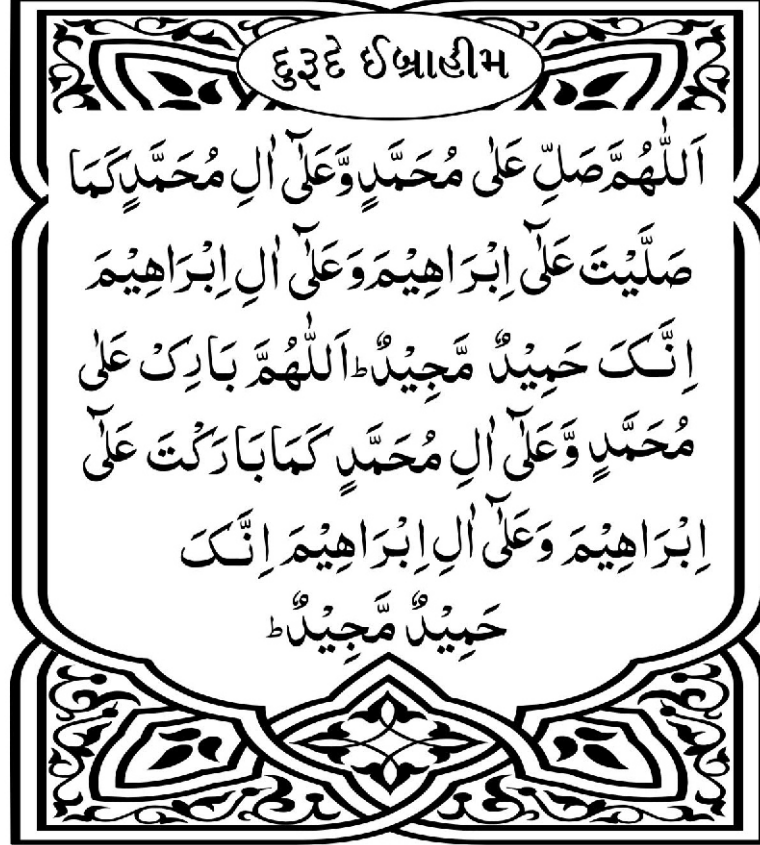 દુરૂદે ઈબ્રાહીમ
اَللّٰهُمَّ صَلِّ عَلٰى مُحَمَّدٍ وَّعَلٰٓى اٰلِ مُحَمَّدٍ كَمَا
صَلَّيْتَ عَلٰٓى اِبْرَاهِيْمَ وَعَلٰٓى اٰلِ اِبْرَاهِيْمَ
اِنَّکَ حَمِيْدٌ مَّجِيْدٌ ؕ اَللّٰهُمَّ بَارِکْ عَلٰى
مُحَمَّدٍ وَّعَلٰٓى اٰلِ مُحَمَّدٍ كَمَا بَارَكْتَ عَلٰٓى
اِبْرَاهِيْمَ وَعَلٰٓى اٰلِ اِبْرَاهِيْمَ اِنَّکَ
حَمِيْدٌ مَّجِيْدٌ ؕ